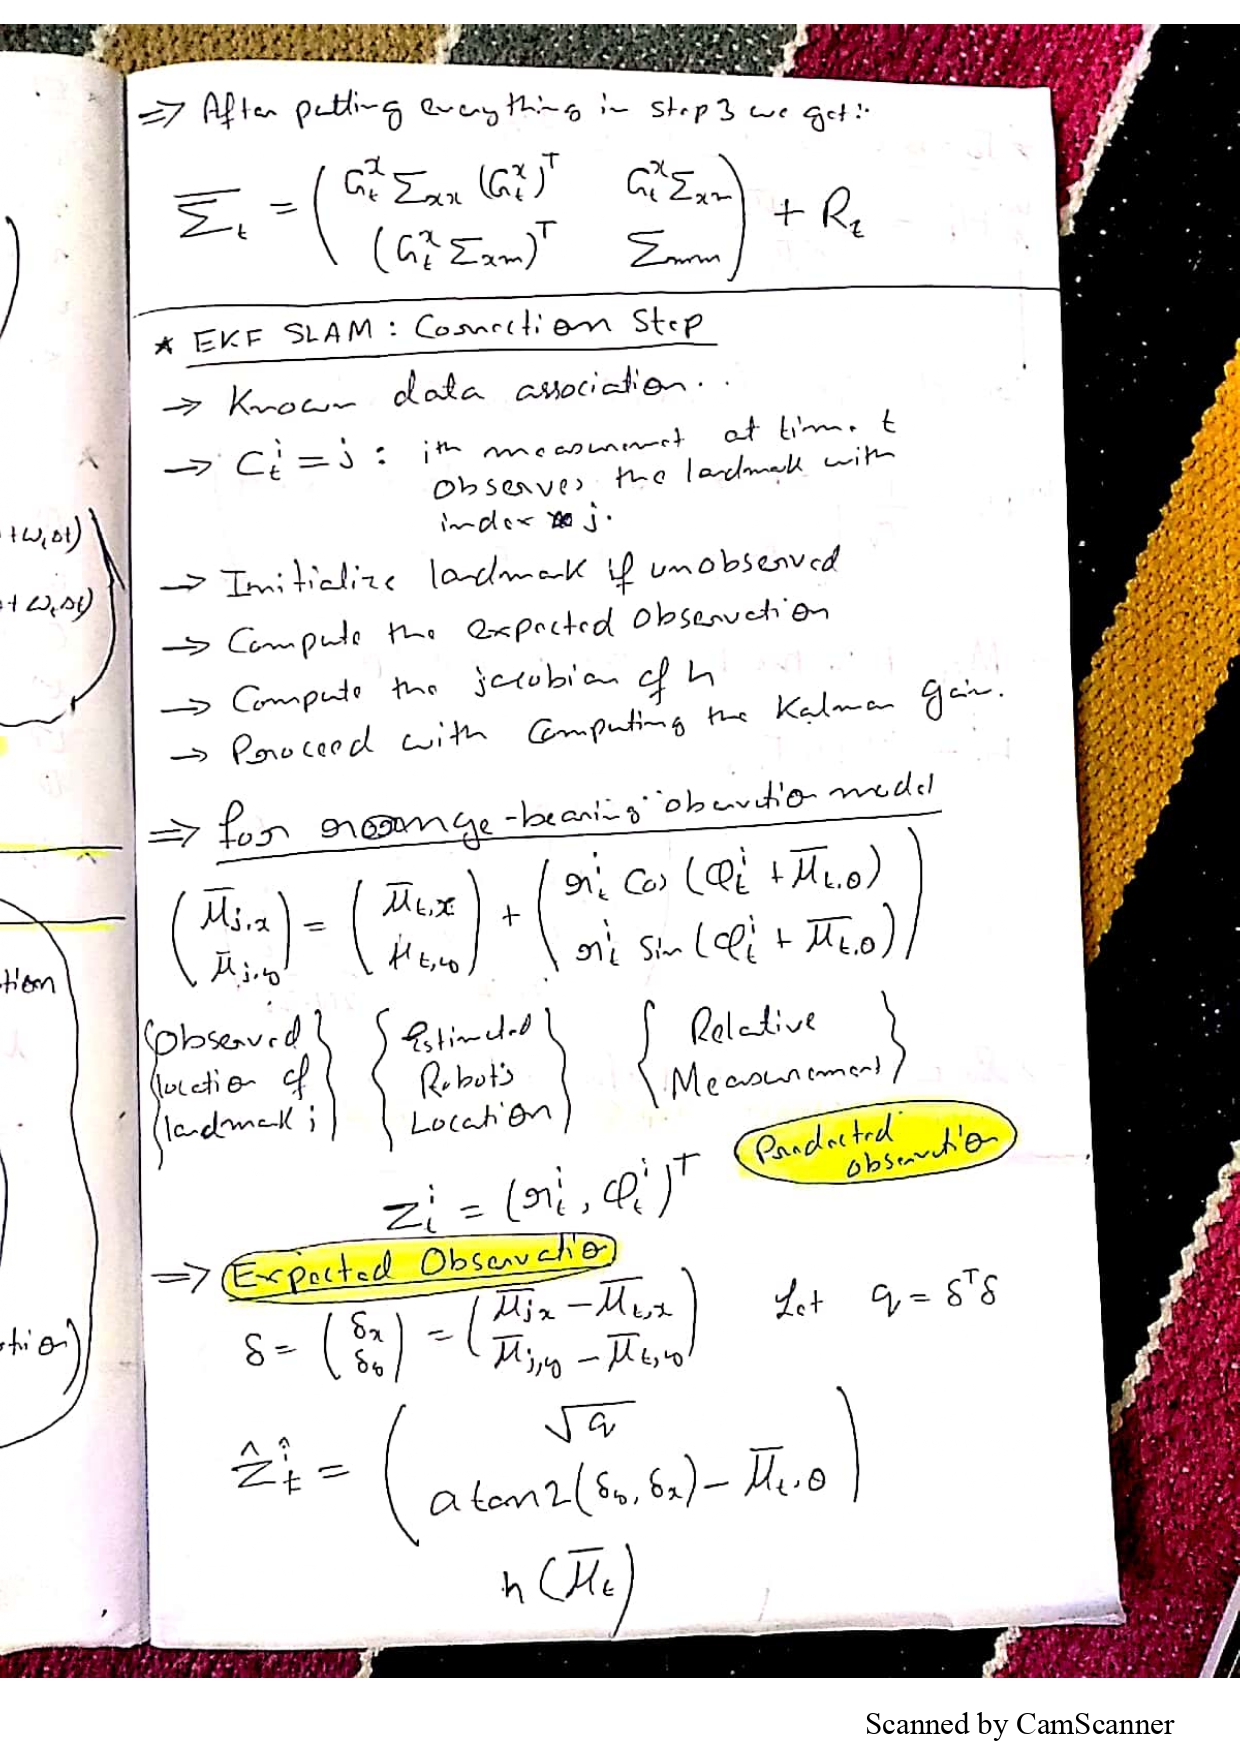 => After putting everything in step 3 we get:
Σ̄_t = ( G_t^x Σ_xx (G_t^x)^T   G_t^x Σ_xm
(G_t^x Σ_xm)^T   Σ_mm ) + R_t
* EKF SLAM: Correction Step
-> Known data association..
-> C_t^i = j : ith measurement at time t
observes the landmark with
index j.
-> Initialize landmark if unobserved
-> Compute the expected observation
-> Compute the jacobian of h
-> Proceed with computing the Kalman Gain.
=> for range-bearing observation model
( μ̄_j,x ) = ( μ̄_t,x ) + ( r_t^i cos(φ_t^i + μ̄_t,θ)
μ̄_j,y   μ_t,y   r_t^i sin(φ_t^i + μ̄_t,θ) )
{Observed} {Estimated} {Relative}
location of   Robot's   Measurement
landmark j   Location
Predected
observation
z_t^i = (r_t^i, φ_t^i)^T
=> Expected Observation
δ = ( δ_x ) = ( μ̄_j,x − μ̄_t,x )   Let q = δ^T δ
δ_y   μ̄_j,y − μ̄_t,y
ẑ_t^i = ( √q
atan2(δ_y, δ_x) − μ̄_t,θ )
h(μ̄_t)
+ω_tΔt)
+ω_tΔt)
tion
ction)
Scanned by CamScanner